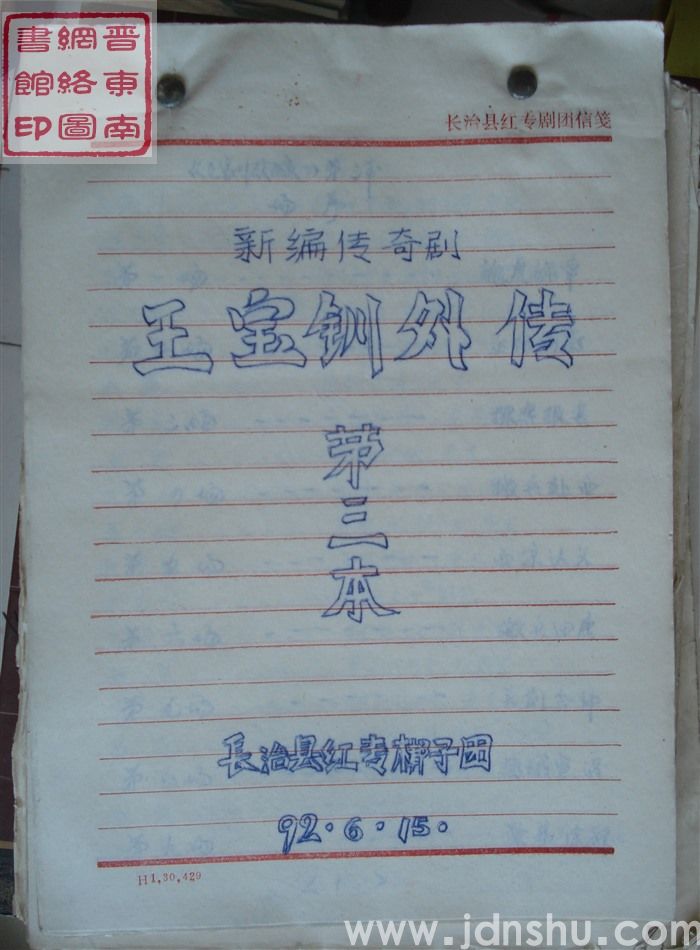 晋东南
網絡圖
書館印
长治县红专剧团信笺
新编传奇剧
王宝钏外传
第三本
長治县红专梆子団
92.6.15.
H1,30,429
www.jdnshu.com